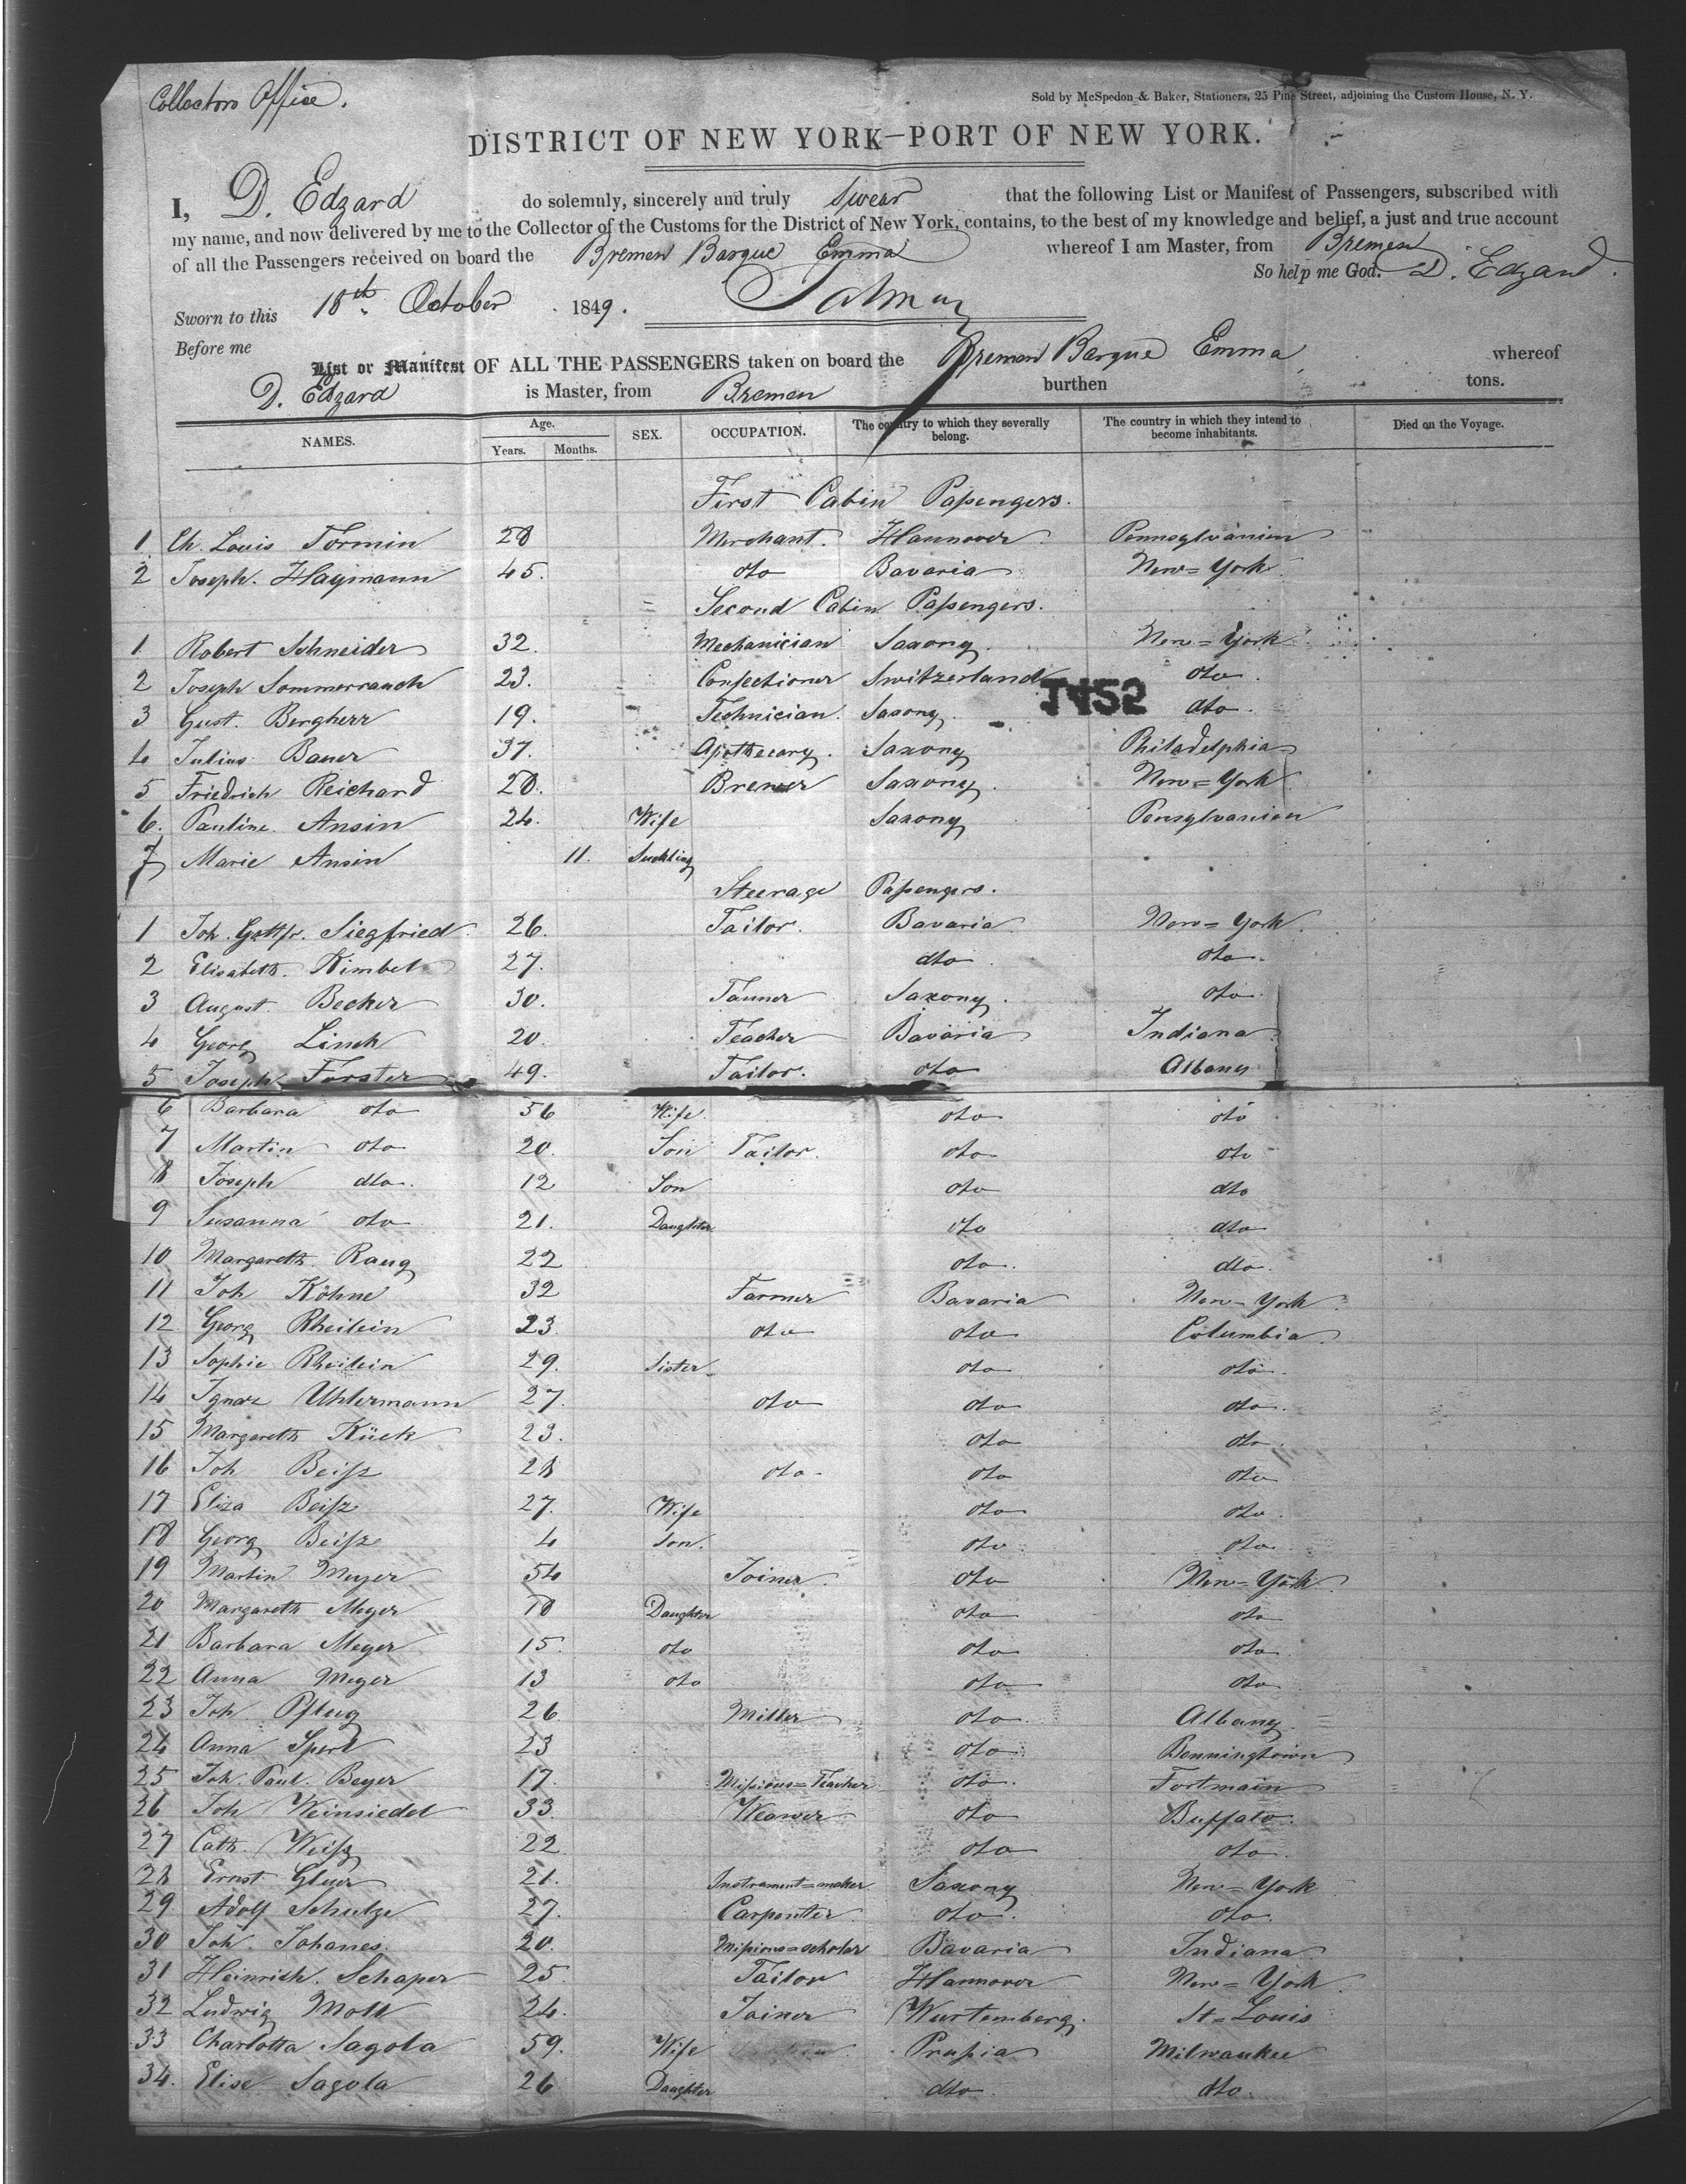 Collectors Office.
Sold by McSpedon & Baker, Stationers, 25 Pine Street, adjoining the Custom House, N. Y.
DISTRICT OF NEW YORK—PORT OF NEW YORK.
I, D. Edzard do solemnly, sincerely and truly swear that the following List or Manifest of Passengers, subscribed with
my name, and now delivered by me to the Collector of the Customs for the District of New York, contains, to the best of my knowledge and belief, a just and true account
of all the Passengers received on board the Bremen Barque Emma whereof I am Master, from Bremen
So help me God. D. Edzard.
Sworn to this 18th October 1849.
Before me
List or Manifest OF ALL THE PASSENGERS taken on board the Bremen Barque Emma whereof
D. Edzard is Master, from Bremen burthen tons.
NAMES. Age. Years. Months. SEX. OCCUPATION. The country to which they severally belong. The country in which they intend to become inhabitants. Died on the Voyage.
First Cabin Passengers.
1 Ch. Louis Formin 28 Merchant. Hannover Pennsylvanien
2 Joseph. Haymann 45. dto Bavaria New=York
Second Cabin Passengers.
1 Robert Schneider 32. Mechanician Saxony. New=York
2 Joseph Sommerrauch 23. Confectioner Switzerland dto.
3 Gust. Bergherr 19. Technician. Saxony. dto.
4 Julius Bauer 37. Apothecary. Saxony Philadelphia
5 Friedrich Reichard 28. Brewer Saxony. New=York
6. Pauline Ansin 24. Wife Saxony Pensylvanien
7 Marie Ansin 11. Suckling
Steerage Passengers.
1 Joh. Gottfr. Siegfried 26. Tailor. Bavaria New=York.
2 Elisabeth Kimbel 27. dto dto.
3 August Becker 30. Tanner Saxony. dto.
4 Georg Linck 20. Teacher Bavaria Indiana
5 Joseph Forster 49. Tailor. dto Albany
6 Barbara dto 56 Wife dto dto
7 Martin dto 20. Son Tailor. dto dto
8 Joseph dto. 12 Son dto dto
9 Susanna dto 21. Daughter dto dto
10 Margareth Raug 22 dto. dto.
11 Joh Köhne 32 Farmer Bavaria New=York
12 Georg Rheilein 23. dto dto Columbia.
13 Sophie Rheilein 29. Sister dto dto.
14 Ignaz Uhlermann 27. dto dto dto.
15 Margareth Kück 23. dto dto.
16 Joh Beisz 28 dto. dto dto
17 Eliza Beisz 27. Wife dto dto.
18 Georg Beisz 4 Son. dto dto.
19 Martin Meyer 54 Joiner. dto New=York.
20 Margareth Meyer 18 Daughter dto dto
21 Barbara Meyer 15 dto dto dto
22 Anna Meyer 13 dto dto dto
23 Joh Pflug 26. Miller dto. Albany.
24 Anna Sperl 23 dto Benningtown
25 Joh. Paul. Beyer 17. Missions=Teacher dto. Fortmain
26 Joh Weinsiedel 33. Weawer dto Buffalo.
27 Cath. Weisz 22 dto dto.
28 Ernst 21. Instrument=maker Saxony New=York
29. Adolf Schulze 27. Carpenter dto. dto.
30 Joh. Johanes. 20. Missions=scholar Bavaria Indiana
31 Heinrich. Schaper 25. Tailor Hannover New=York.
32 Ludwig Moll 24. Joiner Wurtemberg. St=Louis
33 Charlotta Sagola 59. Wife Prussia Milwaukee
34. Elise Sagola 26 Daughter dto. dto.